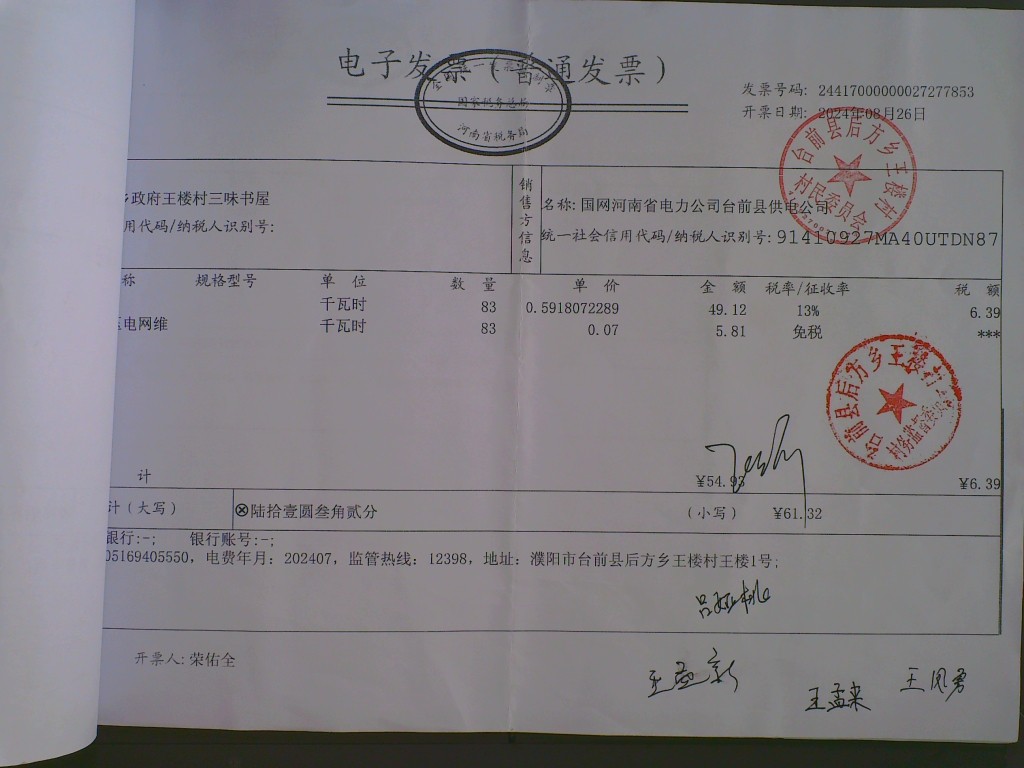 电子发票（普通发票）
国家税务总局
河南省税务局
发票号码: 24417000000027277853
开票日期: 2024年08月26日
台前县后方乡王楼村
村民委员会
乡政府王楼村三味书屋
用代码/纳税人识别号:
销售方信息
名称: 国网河南省电力公司台前县供电公司
统一社会信用代码/纳税人识别号: 91410927MA40UTDN87
称 规格型号 单 位 数 量 单 价 金 额 税率/征收率 税 额
千瓦时 83 0.5918072289 49.12 13% 6.39
电网维 千瓦时 83 0.07 5.81 免税 ***
台前县后方乡王楼村
村务监督委员会
计 ¥54.93 ¥6.39
计（大写） ⊗陆拾壹圆叁角贰分 （小写） ¥61.32
银行:-; 银行账号:-;
05169405550, 电费年月: 202407, 监管热线: 12398, 地址: 濮阳市台前县后方乡王楼村王楼1号;
开票人: 荣佑全
王孟来
王凤勇